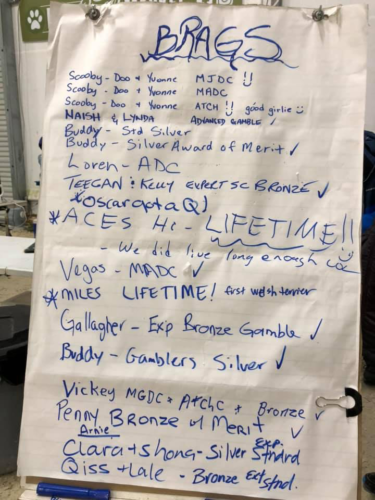 BRAGS
Scooby-Doo + Yvonne MJDC
Scooby-Doo + Yvonne MADC
Scooby-Doo + Yvonne ATCH !! good girlie
NAISH & LYNDA ADVANCED GAMBLE ✓
Buddy - Std Silver
Buddy - Silver Award of Merit ✓
Loren - ADC
TEEGAN & KELLY EXPERT SC BRONZE ✓
* Oscar got a Q!
* ACES Hi - LIFETIME!!
- We did live long enough
Vegas - MADC ✓
* MILES LIFETIME! first welsh terrier
Gallagher - Exp Bronze Gamble ✓
Buddy - Gamblers Silver ✓
Vickey MGDC + AtChC + Bronze ✓
Penny Bronze of Merit ✓
Arnie
Clara + Shona - Silver Exp. Stndrd
Qiss + Lale - Bronze Ext Stnd.